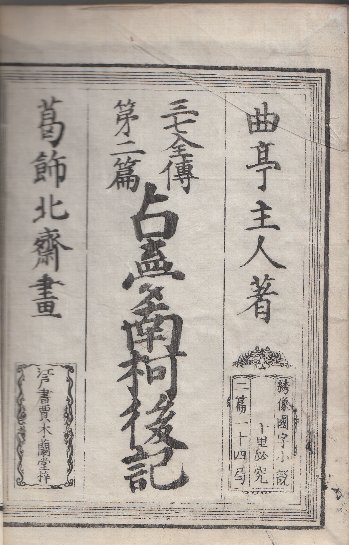 曲亭主人著
繡像國字小說
二篇一十四局
三七全傳
第二篇
占夢南柯後記
葛飾北齋畫
江戶書賈木蘭堂梓